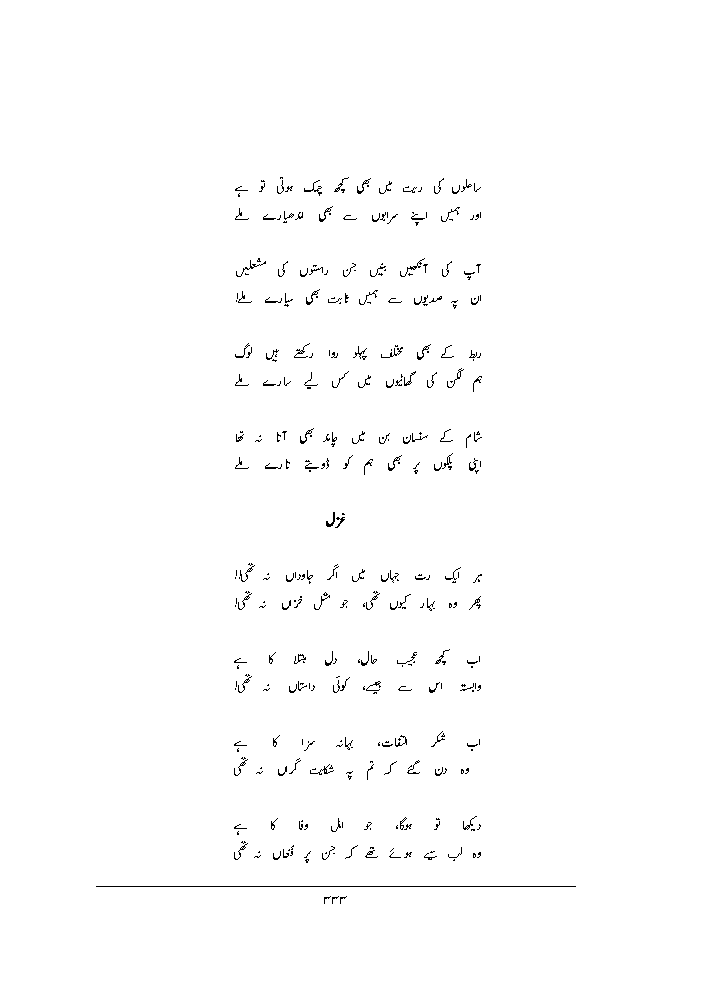 ساعلوں کی ریت میں بھی کچھ چمک ہوتی تو ہے
اور ہمیں اپنے سرابوں سے بھی اندھیارے ملے
آپ کی آنکھیں بنیں جن راستوں کی مشعلیں
ان پہ صدیوں سے ہمیں ثابت بھی سیارے ملے!
ربط کے بھی مختلف پہلو روا رکھتے ہیں لوگ
ہم لگن کی گھاٹیوں میں کس لیے سارے ملے
شام کے سنسان بن میں چاند بھی آتا نہ تھا
اپنی پلکوں پر بھی ہم کو ڈوبتے تارے ملے
غزل
ہر ایک رت جہاں میں اگر جاوداں نہ تھی!!
پھر وہ بہار کیوں تھی، جو مثل خزاں نہ تھی!
اب کچھ عجیب حال، دل مبتلا کا ہے
وابستہ اس سے جیسے، کوئی داستاں نہ تھی!
اب شکر التفات، بہانہ سزا کا ہے
وہ دن گئے کہ تم پہ شکایت گراں نہ تھی
دیکھا تو ہوگا، جو اہل وفا کا ہے
وہ لب سیے ہوئے تھے کہ جن پر فغاں نہ تھی
۳۳۳